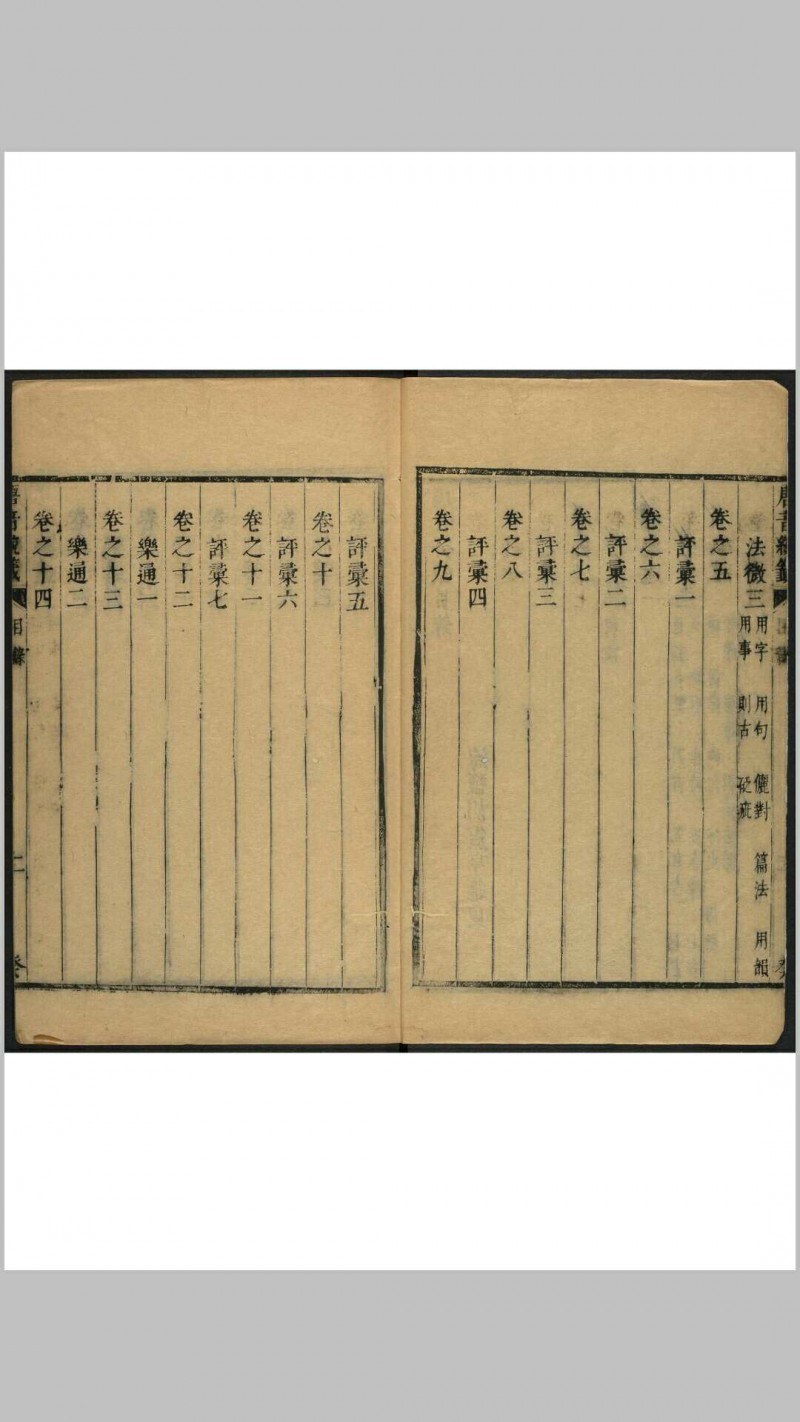 唐音統籤 目錄 癸
法微三 用字 用句 儷對 篇法 用韻
用事 則古 砭疵
卷之五
評彙一
卷之六
評彙二
卷之七
評彙三
卷之八
評彙四
卷之九
評彙五
卷之十
評彙六
卷之十一
評彙七
卷之十二
樂通一
卷之十三
樂通二
卷之十四
唐音統籤 目錄 二 癸